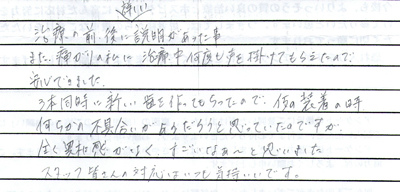 治療の前、後に説明があった事
また、痛がりの私に治療中何度も声を掛けてもらえたので
安心できました。
3本同時に新しい歯を作ってもらったので、仮の装着の時
何らかの不具合いがあるだろうと思っていたのですが、
全く異和感がなく、すごいなぁ〜と思いました
スタッフ皆さんの対応はいつも気持いいです。